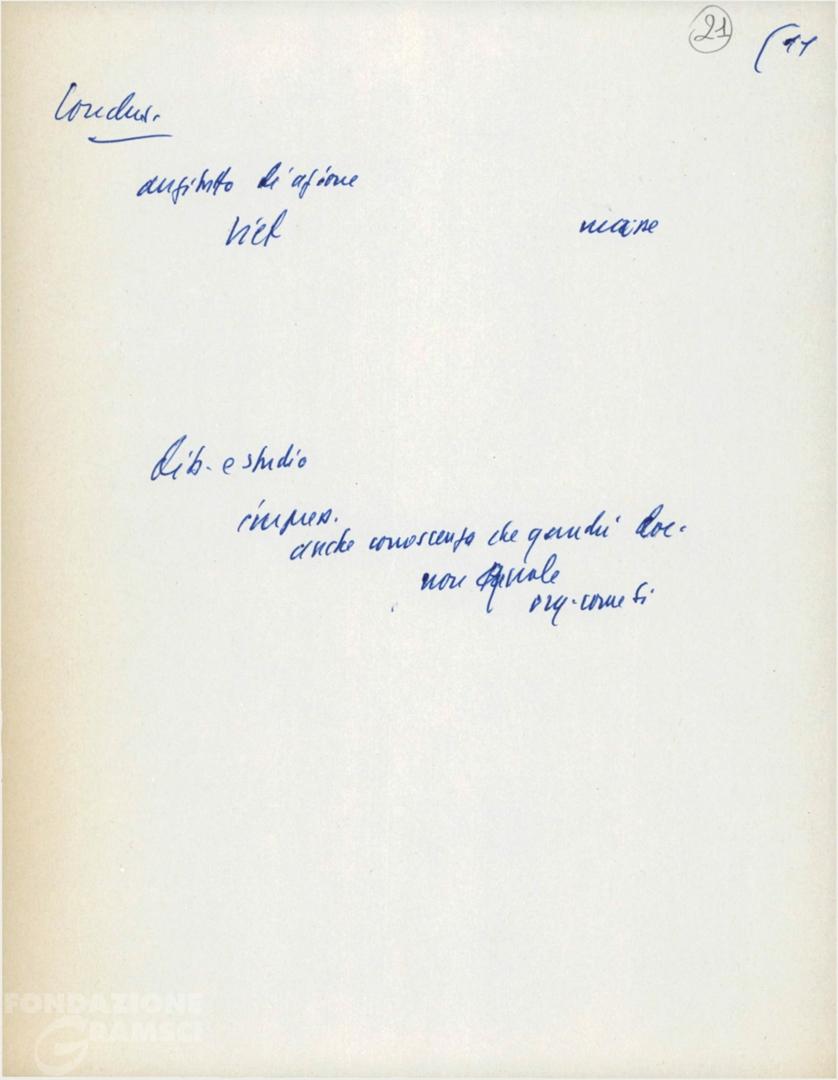 21
Conclus.
di azione
Viet
masse
Dib. e studio
impres.
anche conoscenza che grandi doc.
non
org. come si
FONDAZIONE
GRAMSCI